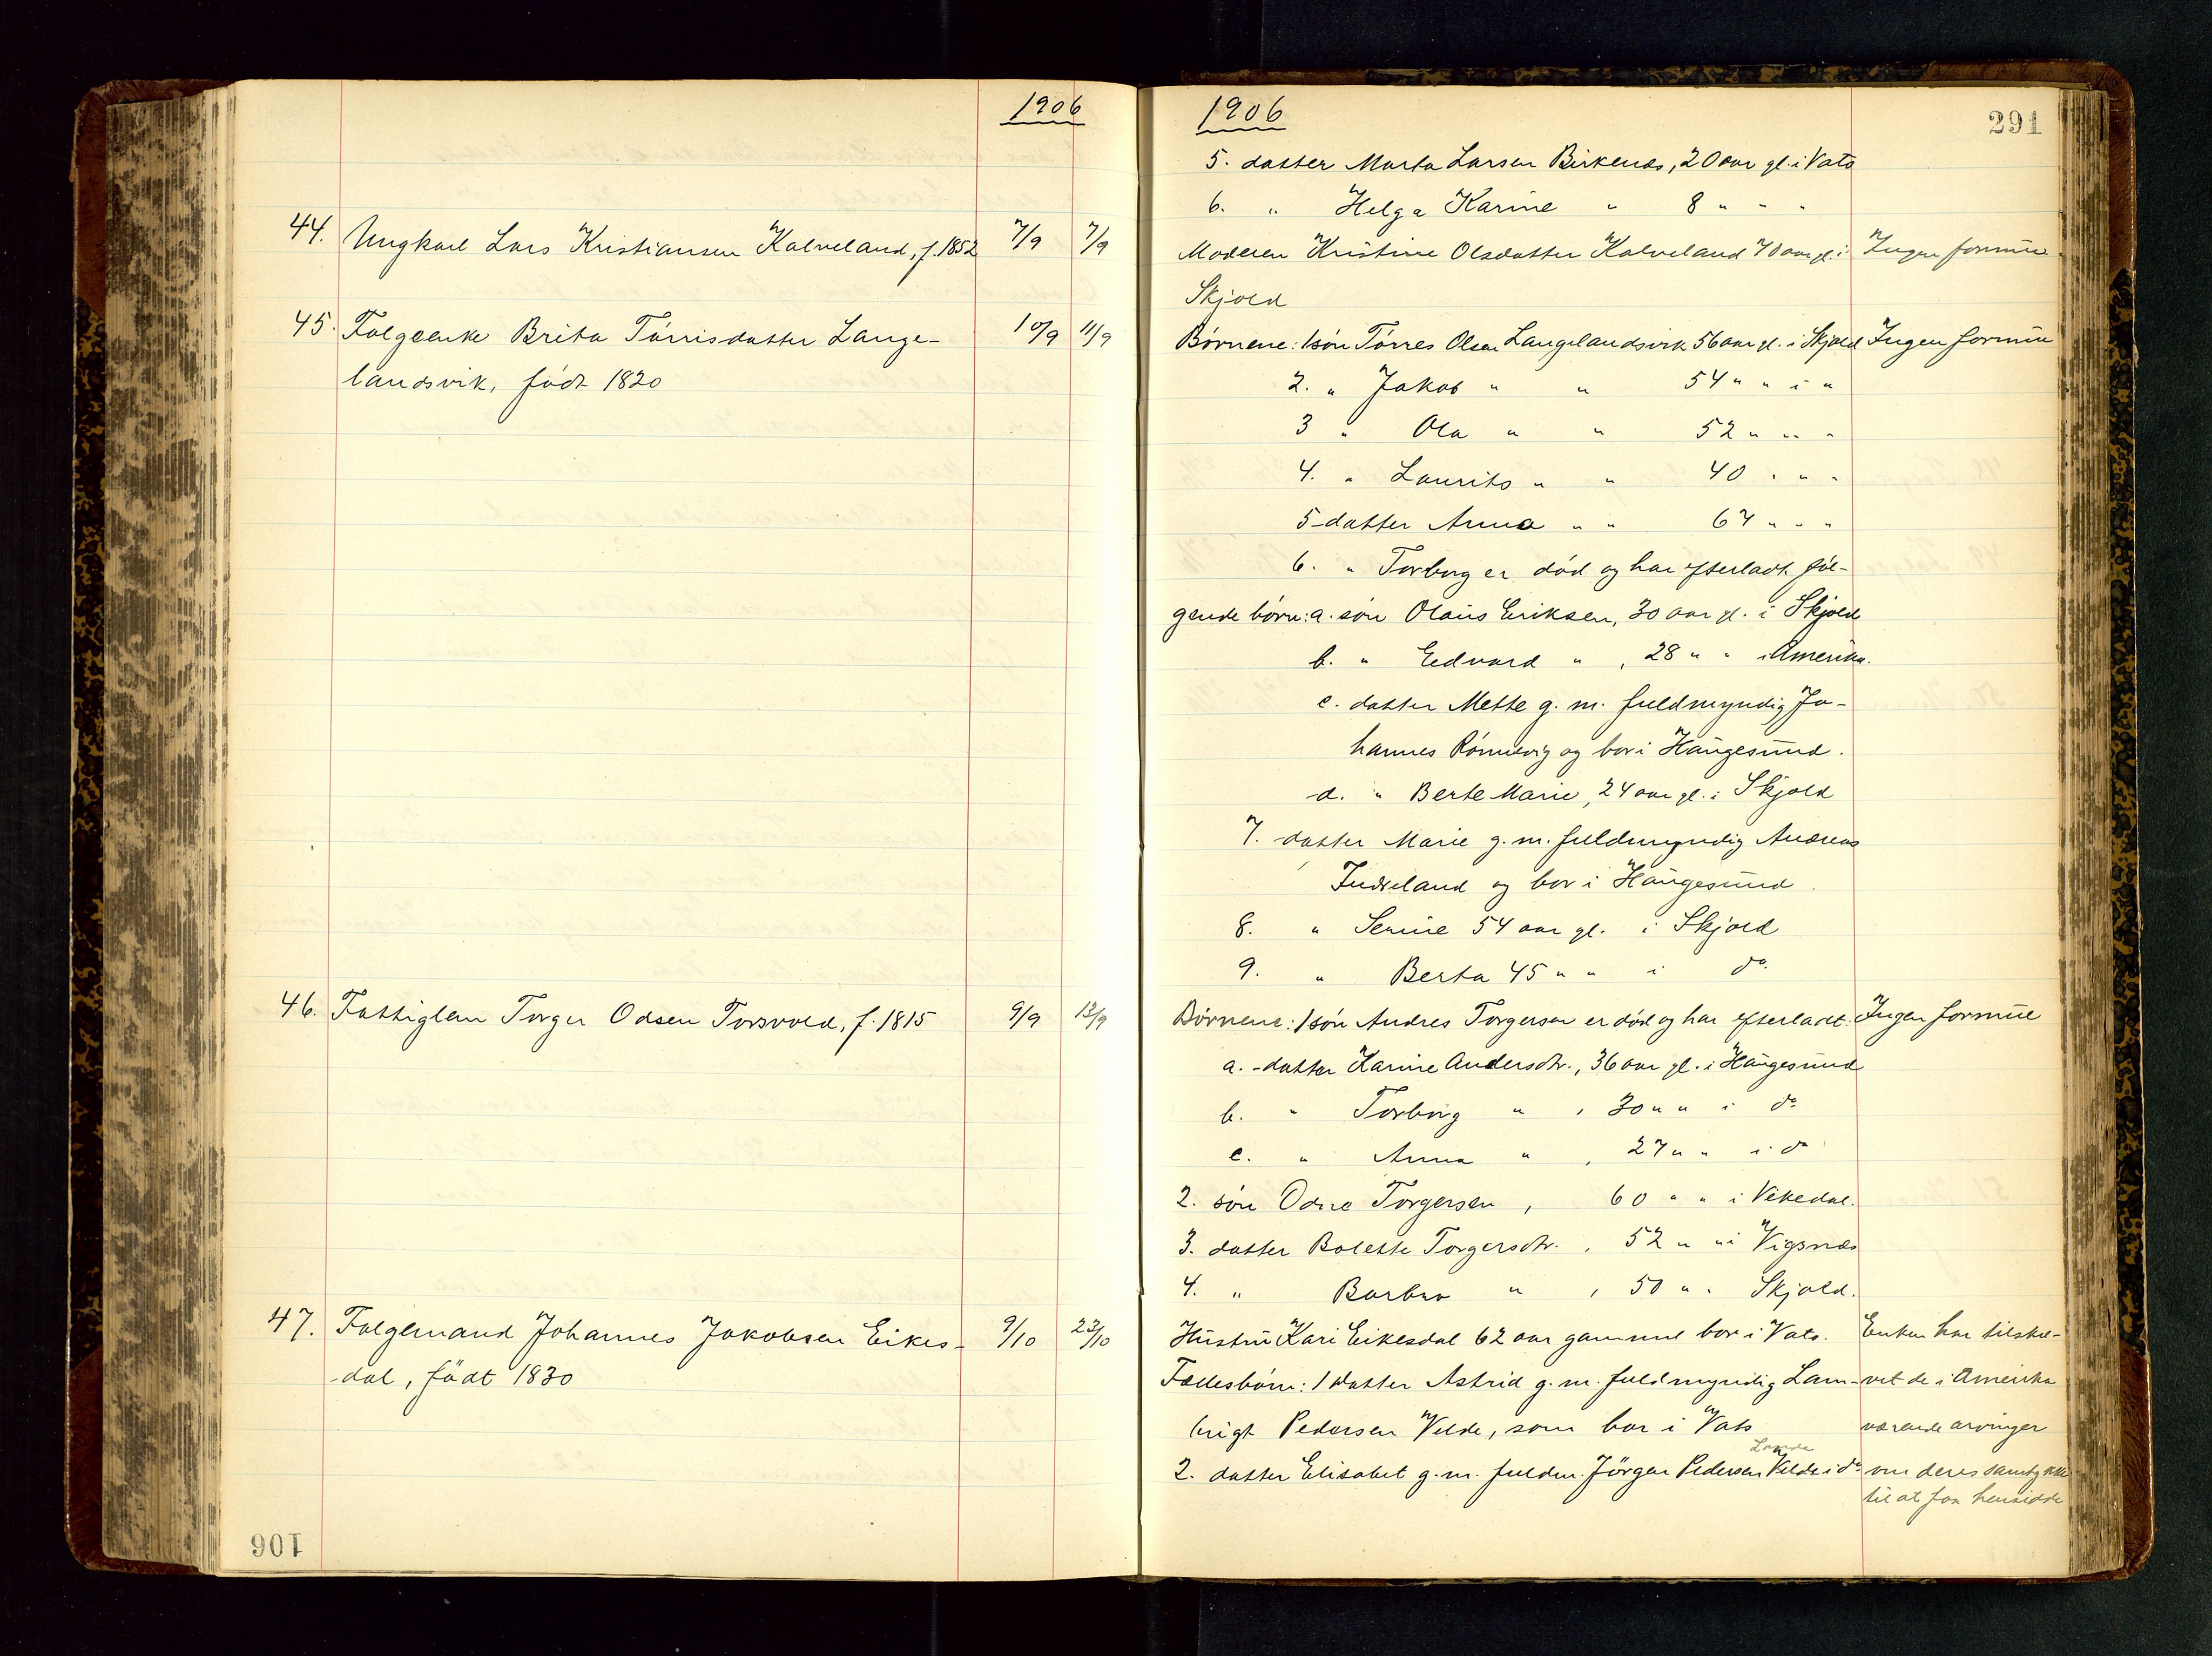 1906
44. Ungkarl Lars Kristiansen Kalveland, f. 1852 7/9 7/9
45. Folgeenke Brita Tørrisdatter Lange- 10/9 11/9
landsvik, født 1820
46. Fattiglem Torger Odsen Torsvold, f. 1815 9/9 13/9
47. Folgemand Johannes Jakobsen Eikes- 9/10 23/10
-dal, født 1830
106
1906
291
5. datter Marta Larsen Birkenes, 20 aar gl. i Vats
6. " Helga Karine " 8 " " "
Moderen Kristine Olsdatter Kalveland 70 aar gl. i Ingen formue.
Skjold
Børnene: 1 søn Tørres Olsen Langelandsvik 56 aar gl. i Skjold Ingen formue
2. " Jakob " " 54 " " i "
3 " Ola " " 52 " " "
4. " Laurits " " 40 " " "
5 datter Anna " " 67 " " "
6. " Torborg er død og har efterladt føl-
gende børn: a. søn Olaus Eriksen, 30 aar gl. i Skjold
b. " Edvard " , 28 " " i Amerika.
c. datter Mette g. m. fuldmyndig Jo-
hannes Rønnevig og bor i Haugesund.
d. " Berte Marie, 24 aar gl. i Skjold
7. datter Marie g. m. fuldmyndig Andreas
Indreland og bor i Haugesund.
8. " Serine 54 aar gl. i Skjold
9. " Berta 45 " " i do.
Børnene: 1 søn Andres Torgersen er død og har efterladt: Ingen formue
a. datter Karine Andersdtr., 36 aar gl. i Haugesund
b. " Torborg " , 30 " " i do
c. " Anna " , 27 " " i do
2. søn Odne Torgersen, 60 " " i Vikedal.
3. datter Bolette Torgersdtr. , 52 " " i Vigsnes
4. " Barbro " , 50 " " Skjold.
Hustru Kari Eikesdal 62 aar gammel bor i Vats. Enken har tilskre-
Fællesbørn: 1 datter Astrid g. m. fuldmyndig Lam- vet de i Amerika
brigt Pedersen Velde, som bor i Vats værende arvinger
Lande
2. datter Elisabet g. m. fuldm. Jörgen Pedersen Velde i do om deres samtykke
til at faa hensidde